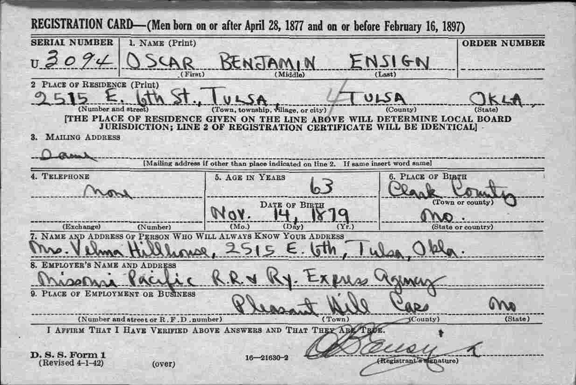 REGISTRATION CARD—(Men born on or after April 28, 1877 and on or before February 16, 1897)
SERIAL NUMBER 1. NAME (Print) ORDER NUMBER
U 3094 OSCAR BENJAMIN ENSIGN
(First) (Middle) (Last)
2 PLACE OF RESIDENCE (Print)
2515 E. 6th St., TULSA, 4 TULSA OKLA.
(Number and street) (Town, township, village, or city) (County) (State)
[THE PLACE OF RESIDENCE GIVEN ON THE LINE ABOVE WILL DETERMINE LOCAL BOARD
JURISDICTION; LINE 2 OF REGISTRATION CERTIFICATE WILL BE IDENTICAL]
3. MAILING ADDRESS
Same
[Mailing address if other than place indicated on line 2. If same insert word same]
4. TELEPHONE 5. AGE IN YEARS 6. PLACE OF BIRTH
None 63 Clark County
DATE OF BIRTH (Town or county)
Nov. 14, 1879 Mo.
(Exchange) (Number) (Mo.) (Day) (Yr.) (State or country)
7. NAME AND ADDRESS OF PERSON WHO WILL ALWAYS KNOW YOUR ADDRESS
Mrs. Velma Hillhouse, 2515 E. 6th, Tulsa, Okla.
8. EMPLOYER'S NAME AND ADDRESS
Missouri Pacific R.R. & Ry. Express Agency
9. PLACE OF EMPLOYMENT OR BUSINESS
Pleasant Hill Cass Mo
(Number and street or R. F. D. number) (Town) (County) (State)
I AFFIRM THAT I HAVE VERIFIED ABOVE ANSWERS AND THAT THEY ARE TRUE.
D. S. S. Form 1
(Revised 4-1-42) (over) 16—21630-2 (Registrant's signature)